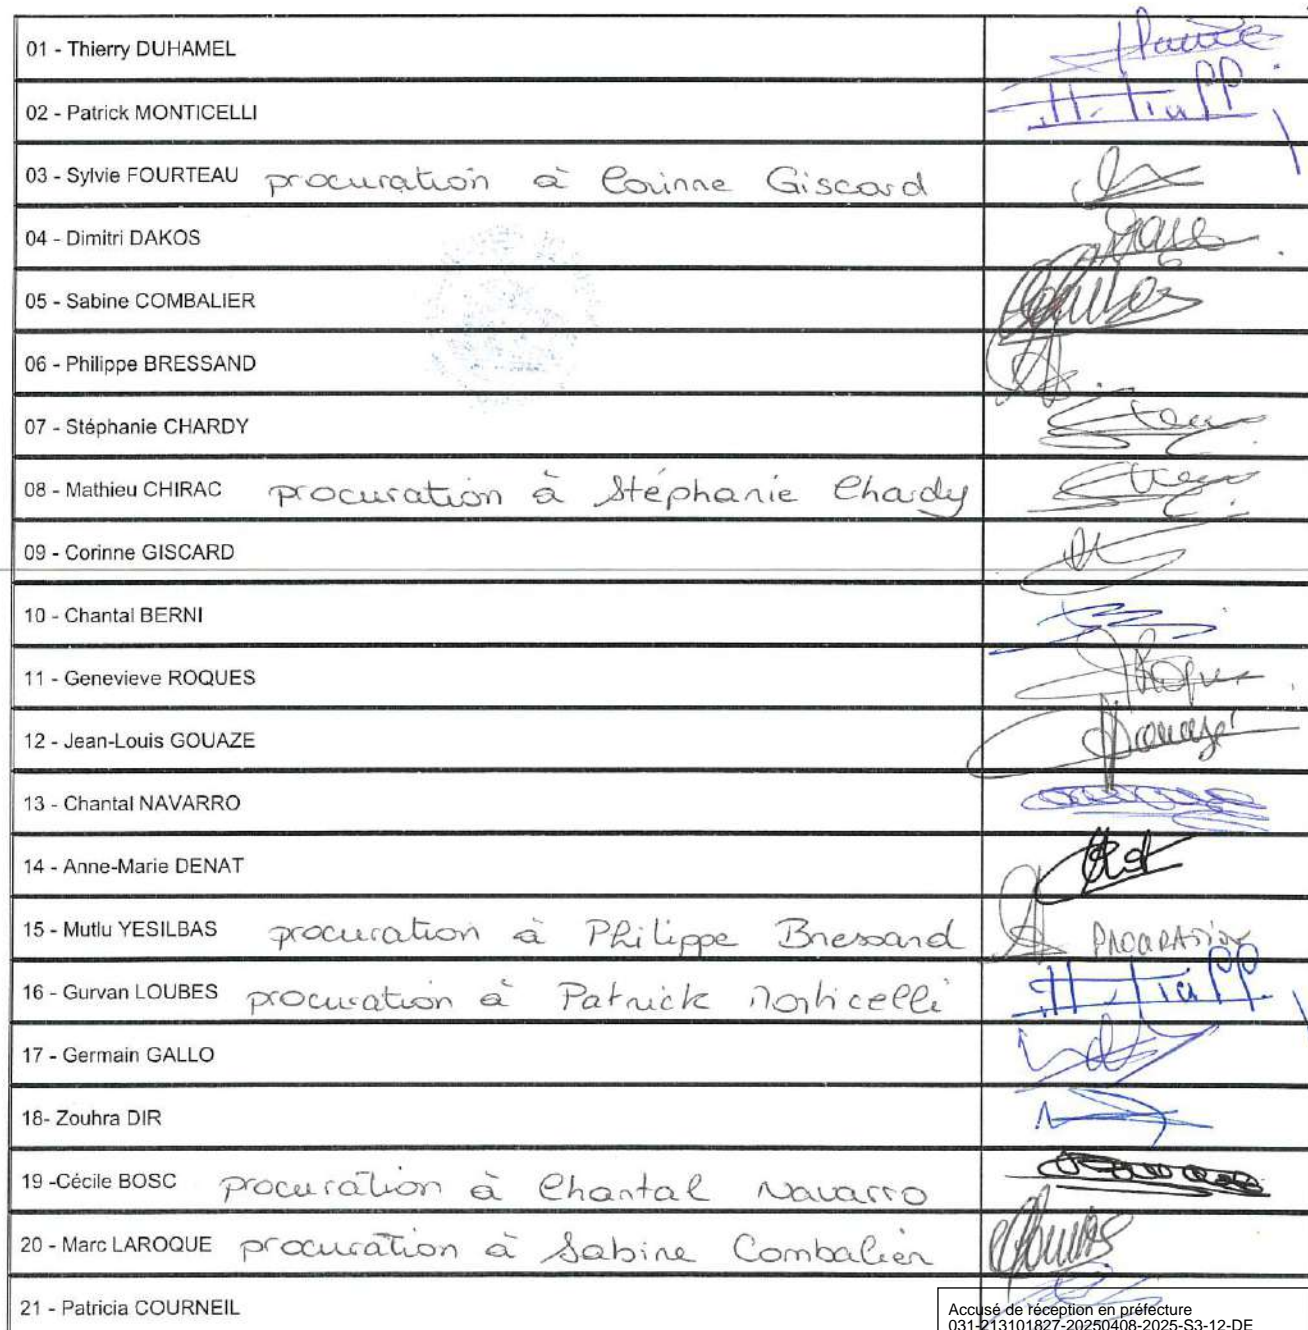 01 - Thierry DUHAMEL
02 - Patrick MONTICELLI
03 - Sylvie FOURTEAU procuration à Corinne Giscard
04 - Dimitri DAKOS
05 - Sabine COMBALIER
06 - Philippe BRESSAND
07 - Stéphanie CHARDY
08 - Mathieu CHIRAC procuration à Stéphanie Chardy
09 - Corinne GISCARD
10 - Chantal BERNI
11 - Genevieve ROQUES
12 - Jean-Louis GOUAZE
13 - Chantal NAVARRO
14 - Anne-Marie DENAT
15 - Mutlu YESILBAS procuration à Philippe Bressand PROCURATION
16 - Gurvan LOUBES procuration à Patrick Monticelli
17 - Germain GALLO
18- Zouhra DIR
19 -Cécile BOSC procuration à Chantal Navarro
20 - Marc LAROQUE procuration à Sabine Combalier
21 - Patricia COURNEIL
Accusé de réception en préfecture
031-213101827-20250408-2025-S3-12-DE